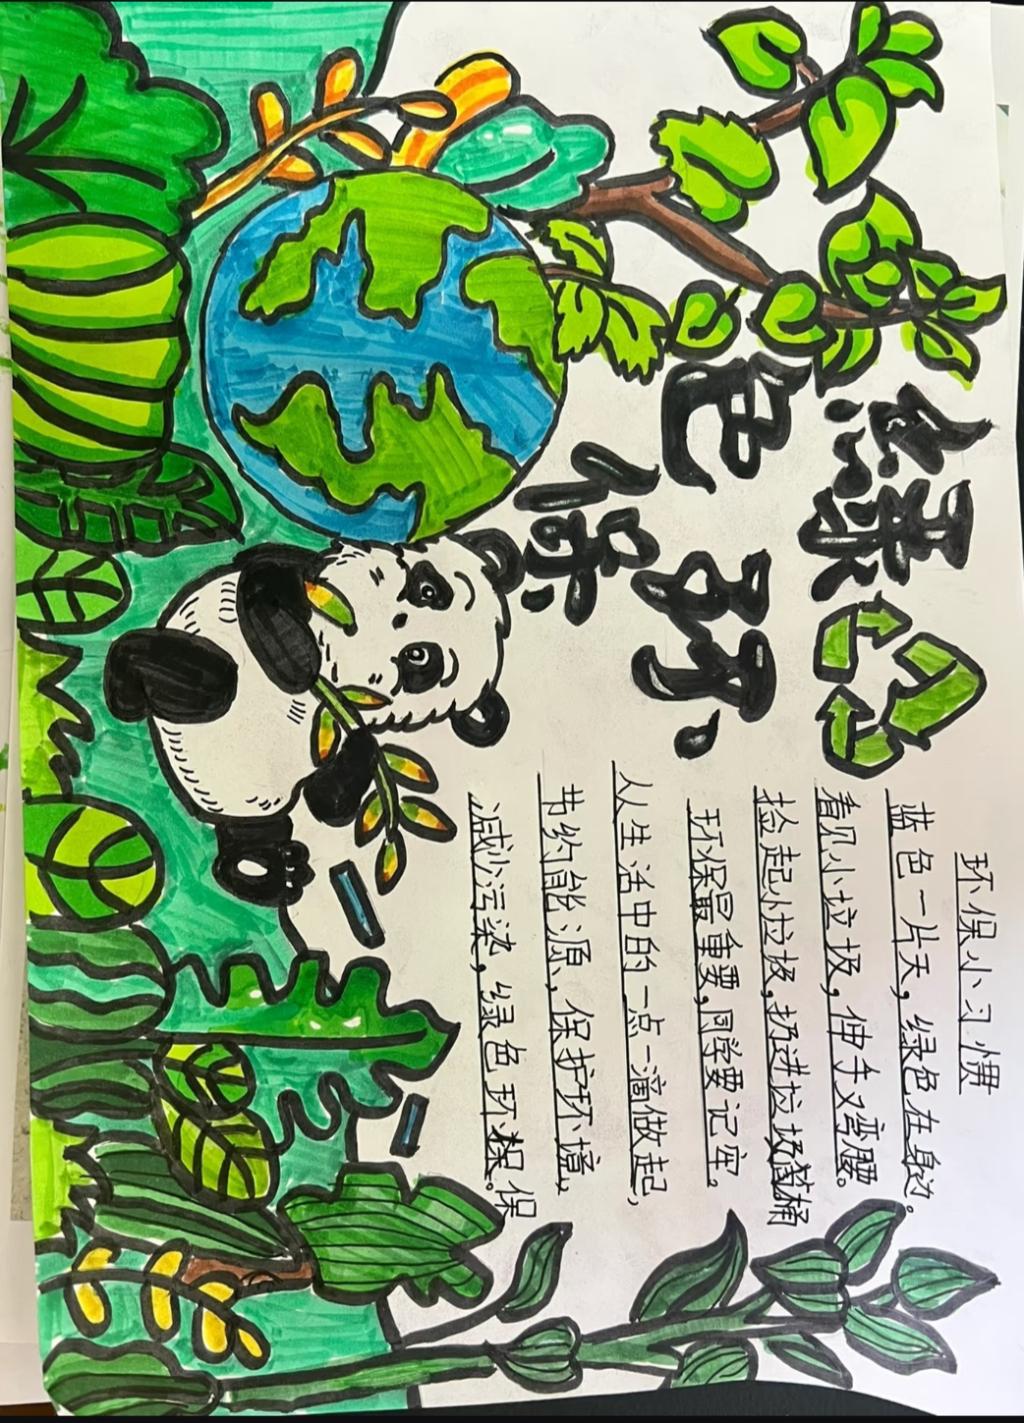 绿色环保
环保小习惯
蓝色一片天，绿色在身边。
看见小垃圾，伸手又弯腰。
捡起小垃圾，扔进垃圾桶
环保最重要，同学要记牢。
从生活中的一点一滴做起，
节约能源，保护环境，
减少污染，绿色环保